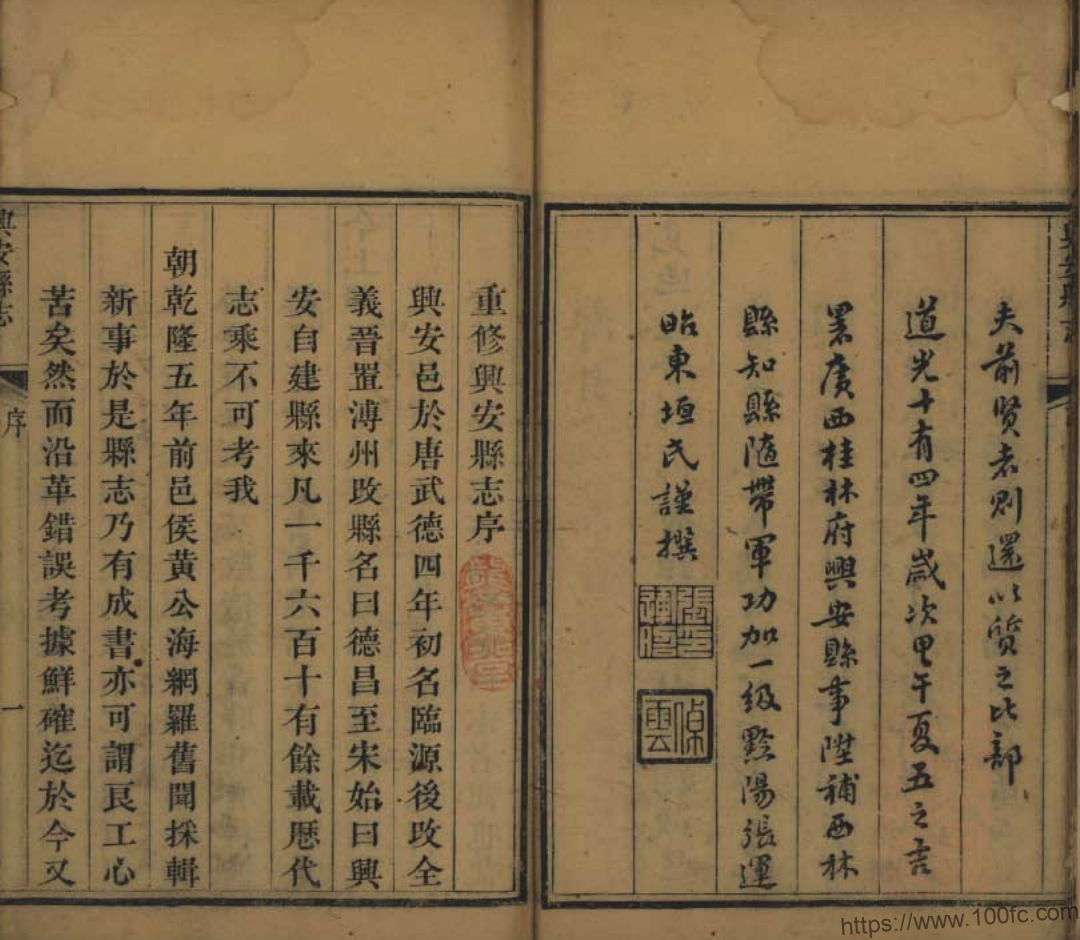 夫前賢者則還以質之比部
道光十有四年歲次甲午夏五之吉
署廣西桂林府興安縣事陞補西林
縣知縣隨帶軍功加一級黔陽張運
昭東垣氏謹撰
重修興安縣志序
興安邑於唐武德四年初名臨源後改全
義晉置溥州改縣名曰德昌至宋始曰興
安自建縣來凡一千六百十有餘載歷代
志乘不可考我
朝乾隆五年前邑侯黃公海網羅舊聞採輯
新事於是縣志乃有成書亦可謂良工心
苦矣然而沿革錯誤考據鮮確迄於今又
興安縣志
序
一
https://www.100fc.com